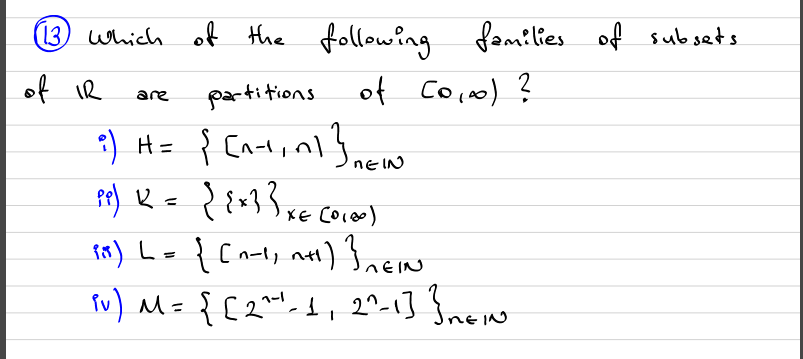 (13) Which of the following families of subsets
of ℝ are partitions of [0,∞) ?
i) H = { [n-1, n) }ₙ∈ℕ
ii) K = { {x} }ₓ∈[0,∞)
iii) L = { [n-1, n+1) }ₙ∈ℕ
iv) M = { [2ⁿ⁻¹-1, 2ⁿ-1] }ₙ∈ℕ